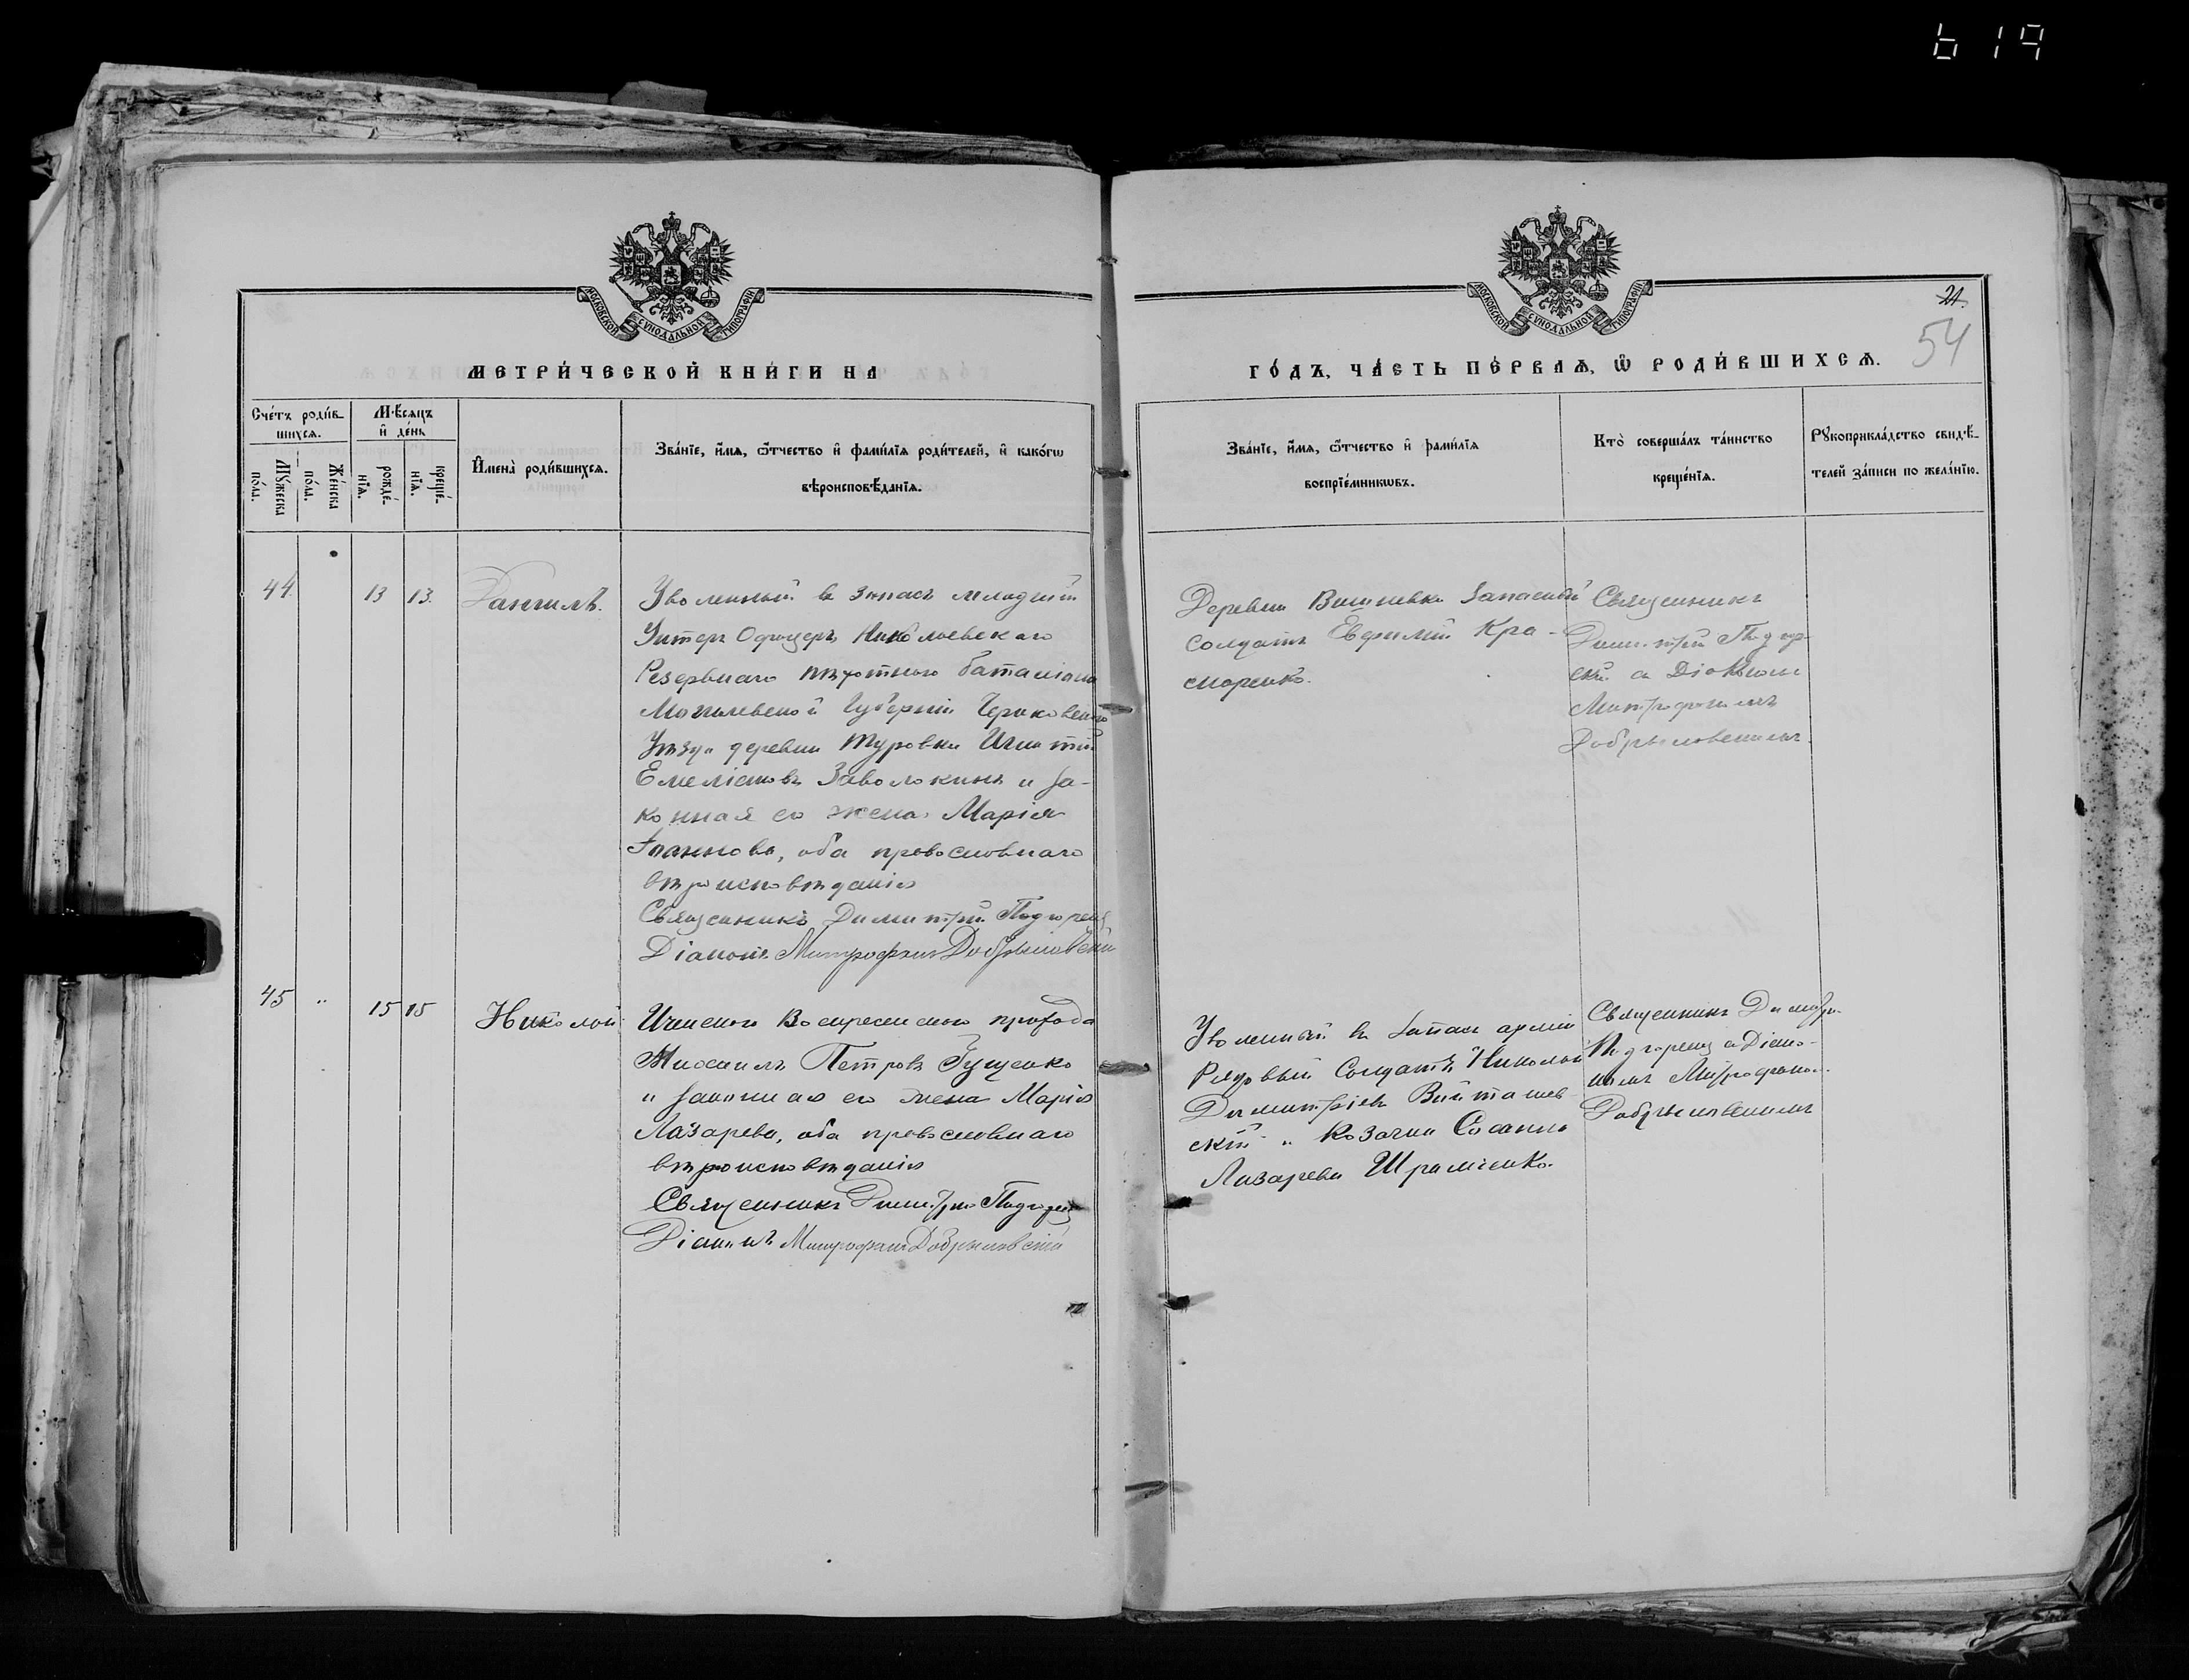 619
МОСКОВСКОЙ СѴНОДАЛЬНОЙ ТИПОГРАФІИ
МЕТРИ́ЧЕСКОЙ КНИ́ГИ НА
Сче́тъ роди́в-
шихсѧ.
Мѣ́сѧцъ
и҆ де́нь
Мꙋ́жеска
по́ла.
Же́нска
по́ла.
рожде́-
нїѧ.
креще́-
нїѧ.
И҆мена̀ роди́вшихсѧ.
Зва́нїе, и҆́мѧ, ѻ҆́тчество и҆ фами́лїѧ роди́телей, и҆ како́гѡ
вѣроисповѣ́данїѧ.
44. 13 13. Даніилъ.
Уволенный въ запасъ младшій
Унтеръ Офицеръ Николаевскаго
Резервнаго пѣхотнаго баталіона
Могилевской Губерніи Чериковскаго
Уѣзда деревни Туровки Игнатій
Емеліановъ Заволокинъ и за-
конная его жена Марія
Іоаннова, оба православнаго
вѣроисповѣданія
Священникъ Димитрій Подгорец
Діаконъ Митрофанъ Добрыловскій
45 " 15 15 Николай
Ичнскаго Воскресенскаго прихода
Михаилъ Петровъ Гущенко
и законная его жена Марія
Лазарева, оба православнаго
вѣроисповѣданія
Священникъ Димитрій Подгорец
Діаконъ Митрофанъ Добрыловскій
МОСКОВСКОЙ СѴНОДАЛЬНОЙ ТИПОГРАФІИ
21.
54
ГО́ДЪ, ЧА́СТЬ ПЕ́РВАѦ, Ѡ҆ РОДИ́ВШИХСѦ.
Зва́нїе, и҆́мѧ, ѻ҆́тчество и҆ фами́лїѧ
воспрїе́мникѡвъ.
Кто̀ соверша́лъ та́инство
креще́нїѧ.
Рꙋкоприкла́дство свидѣ́-
телей за́писи по жела́нїю.
Деревни Вишневки Запасный
солдатъ Евфимій Кра-
сноренко.
Священникъ
Димитрій Подгоре-
скій съ Діакономъ
Митрофаномъ
Добрыловскимъ.
Уволенный въ запасъ арміи
Рядовый Солдатъ Николай
Димитріевъ Войташев-
скій и Козачка Сосанна
Лазарева Шраменко.
Священникъ Димитр.
Подгорец съ Діако-
номъ Митрофаном.
Добрыловскимъ